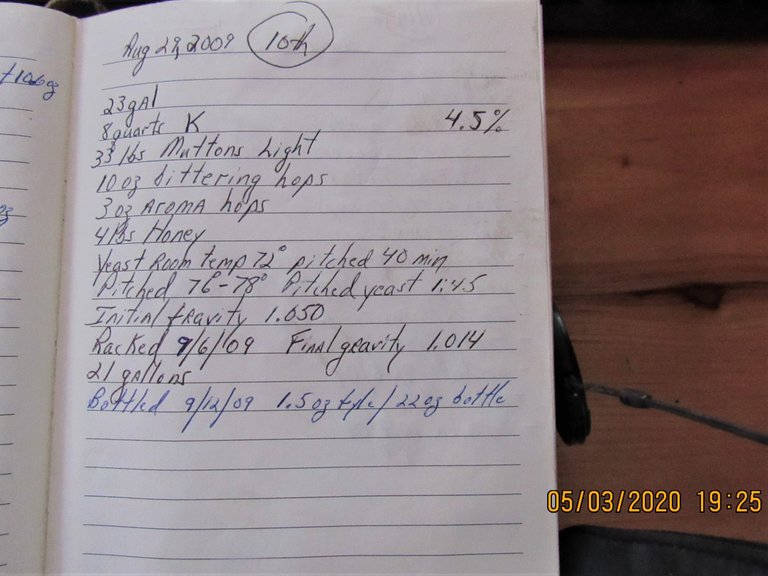 Aug 29, 2009 10th
+ 10.6 oz
oz
23 gAl
8 quarts K 4.5%
33 lbs Muttons Light
10 oz bittering hops
3 oz AROMA hops
4 lbs Honey
Yeast Room temp 72° pitched 40 min
Pitched 76°-78° Pitched yeast 1:45
Initial gravity 1.050
Racked 9/6/09 Final gravity 1.014
21 gallons
Bottled 9/12/09 1.5 oz / 22 oz bottle
05/03/2020 19:25